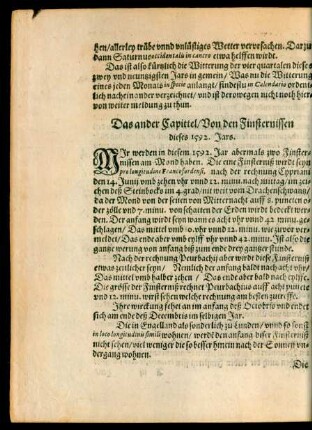 ßen/allerley trübe vnnd vnlüstiges Wetter vervrsachen. Darzu
dann Saturnus occidentalis in cancro etwa helffen wirdt.
Das ist also kürtzlich die Witterung der vier quartalen dieses
zwey vnd neuntzigsten Jars in gemein/Was nu die Witterung
eines jeden Monats in specie anlangt/findestu in Calendario ordent-
lich nacheinander verzeichnet/vnd ist derowegen nicht noth hier-
von weiter meldung zu thun.
Das ander Capittel/Von den Finsternissen
dieses 1592. Jars.
WIr werden in diesem 1592. Jar abermals zwo Finster-
nissen am Mond haben. Die eine Finsternuß wirdt seyn
pro longitudine Francofordensi, nach der rechnung Cypriani
den 14. Junij vmb zehen vhr vnnd 12. minu. nach mittag/im zei-
chen deß Steinbocks im 4. grad mit dem Drachenschwantz/
da der Mond von der seiten von Mitternacht auff 8. puncten o-
der zölle vnd 7. minu. vom schatten der Erden wirdt bedeckt wer-
den. Der anfang wirdt seyn wann es acht vhr vnnd 42. minu. ge-
schlagen/Das mittel vmb 10. vhr vnnd 12. minu. wie zuvor ver-
meldet/Das ende aber vmb eylff vhr vnnd 42. minu. Ist also die
gantze werung von anfang biß zum ende drey gantzer stunde.
Nach der rechnung Peurbachij aber wirdt diese Finsternuß
etwas zeitlicher seyn/ Nemlich der anfang baldt nach acht vhr/
Das mittel vmb halber zehen/ Das ende aber bald nach eylffe.
Die grösse der Finsternuß rechnet Peurbachius auff acht puncte
vnd 12. minu. wirst sehen welche rechnung am besten zutreffe.
Ihre wirckung sehet an im anfang deß Octobris vnd endet
sich am ende deß Decembris im selbigen Jar.
Die in Engelland als sonderlich zu Lunden/vnd so sonst
in loco longitudinis simili wohnen/ werdẽ den anfang dieser Finsternuß
nicht sehen/viel weniger die so besser hinein nach der Sonnen vn-
dergang wohnen.
Die